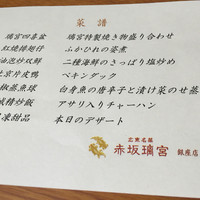 菜譜
璃宮四喜盆 璃宮特製焼き物盛り合わせ
紅焼繆翅仔 ふかひれの姿煮
油泡炒双鮮 二種海鮮のさっぱり塩炒め
北京片皮鴨 北京ダック
椒蒸魚球 白身魚の唐辛子と漬け菜のせ蒸
咸精炒飯 アサリ入りチャーハン
凍甜品 本日のデザート
広東名菜
赤坂璃宮 銀座店